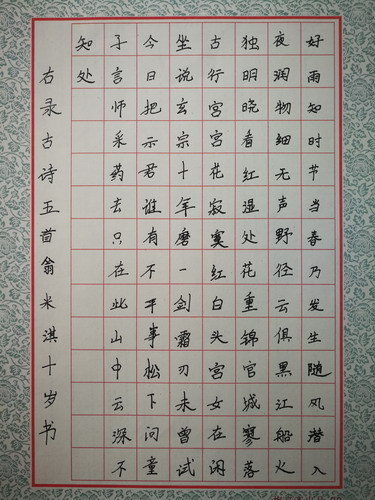 好雨知时节当春乃发生随风潜入
夜润物细无声野径云俱黑江船火
独明晓看红湿处花重锦官城寥落
古行宫宫花寂寞红白头宫女在闲
坐说玄宗十年磨一剑霜刃未曾试
今日把示君谁有不平事松下问童
子言师采药去只在此山中云深不
知处
右录古诗五首翁米淇十岁书